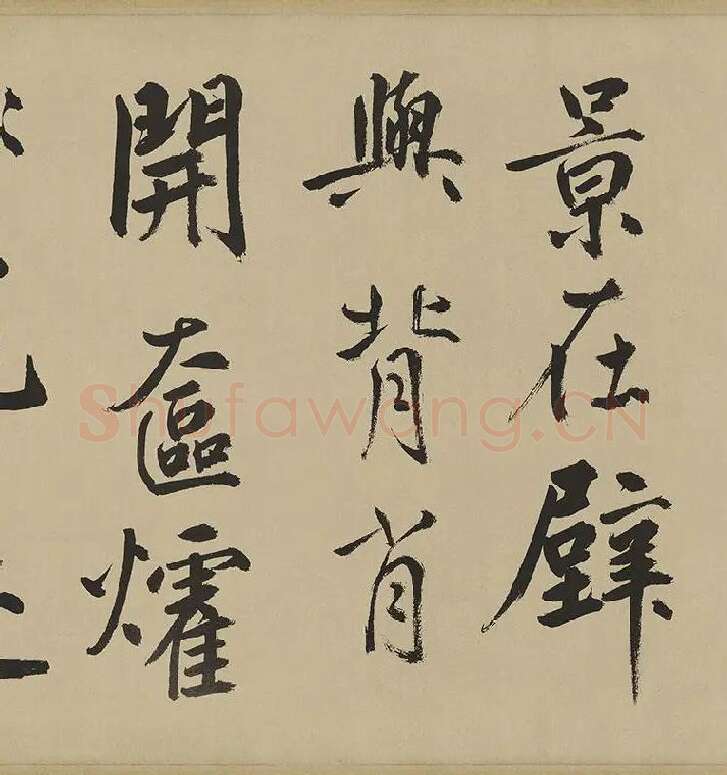 景在壁
與背肖
開奩㸌
Shufawang.CN